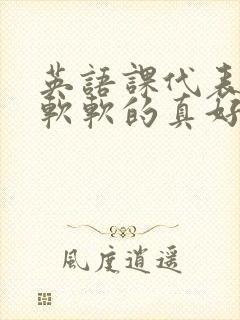 英語課代表
軟軟的真好
風度逍遥